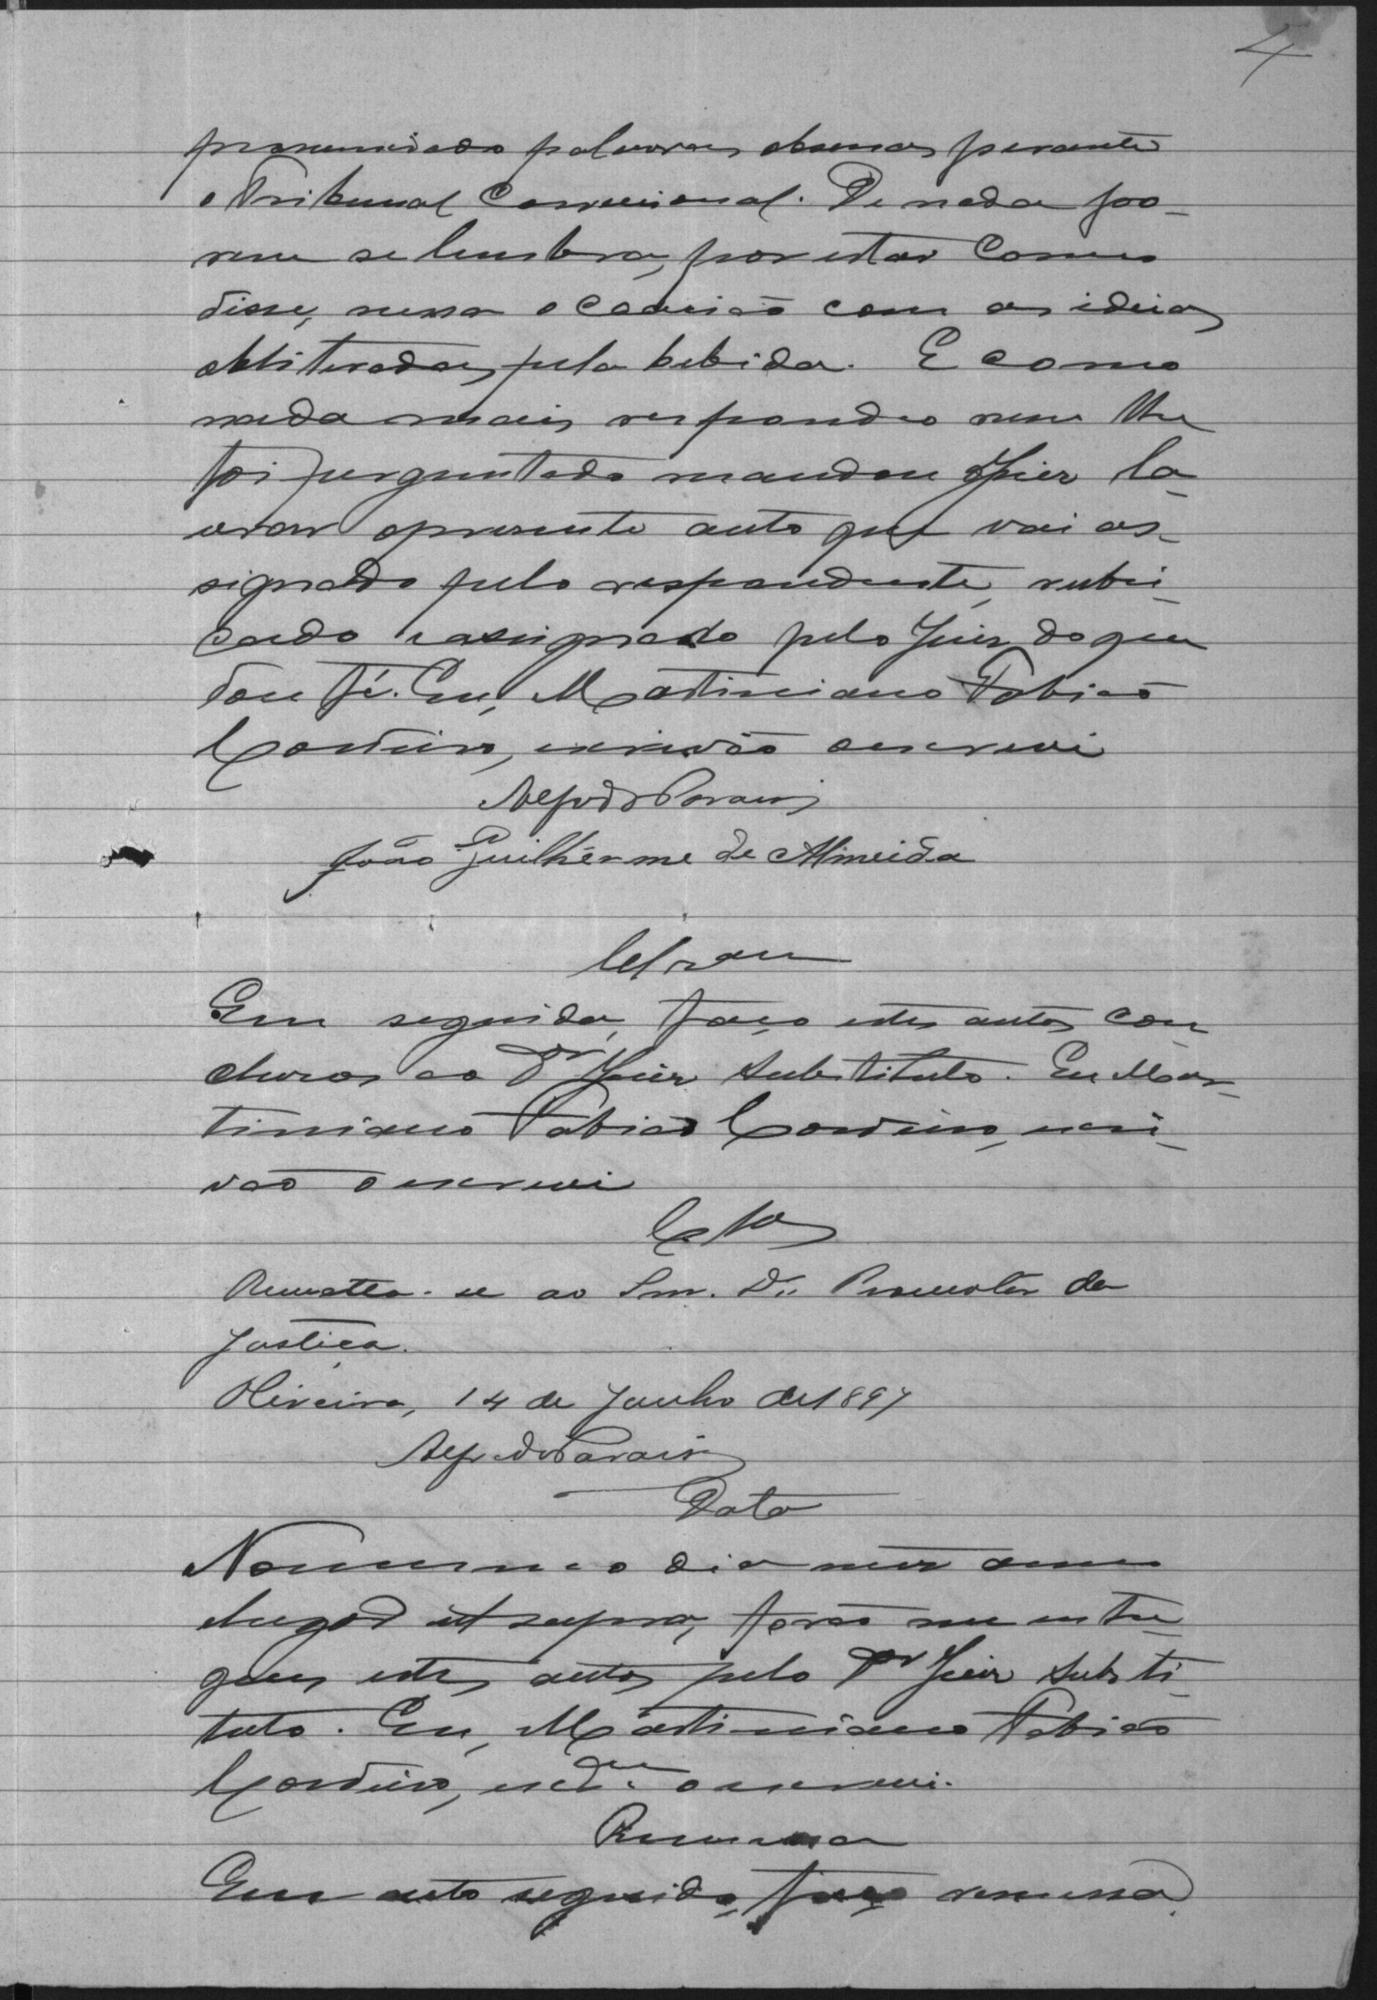 4
pronunciado palavras obscenas perante
o Tribunal Correccional. De nada po-
rem se lembra, por estar como
disse, nessa occasião com as ideias
obliteradas pela bebida. E como
nada mais respondeo nem lhe
foi perguntado mandou o Juiz la-
vrar o presente auto que vai as-
signado pelo respondente, rubri-
cado e assignado pelo Juiz do que
dou fé. Eu, Martiniano Fabião
Cordeiro, escrivão o escrevi
Alfredo Paraiso
João Guilherme de Almeida
Clsam
Em seguida, faço estes autos con
clusos ao Dr Juiz Substituto. Eu Mar-
tiniano Fabião Cordeiro, escri-
vão o escrevi
Clsos
Remetta-se ao Snr. Dr. Promotor da
Justiça.
Oliveira, 14 de Junho de 1897
Alfredo Paraiso
Data
No mesmo dia mez anno
e lugar ut supra, forão me entre-
gues estes autos pelo Dr Juiz Substi-
tuto. Eu, Martiniano Fabião
Cordeiro, o escrevi.
Remessa
Em acto seguido, faço remessa